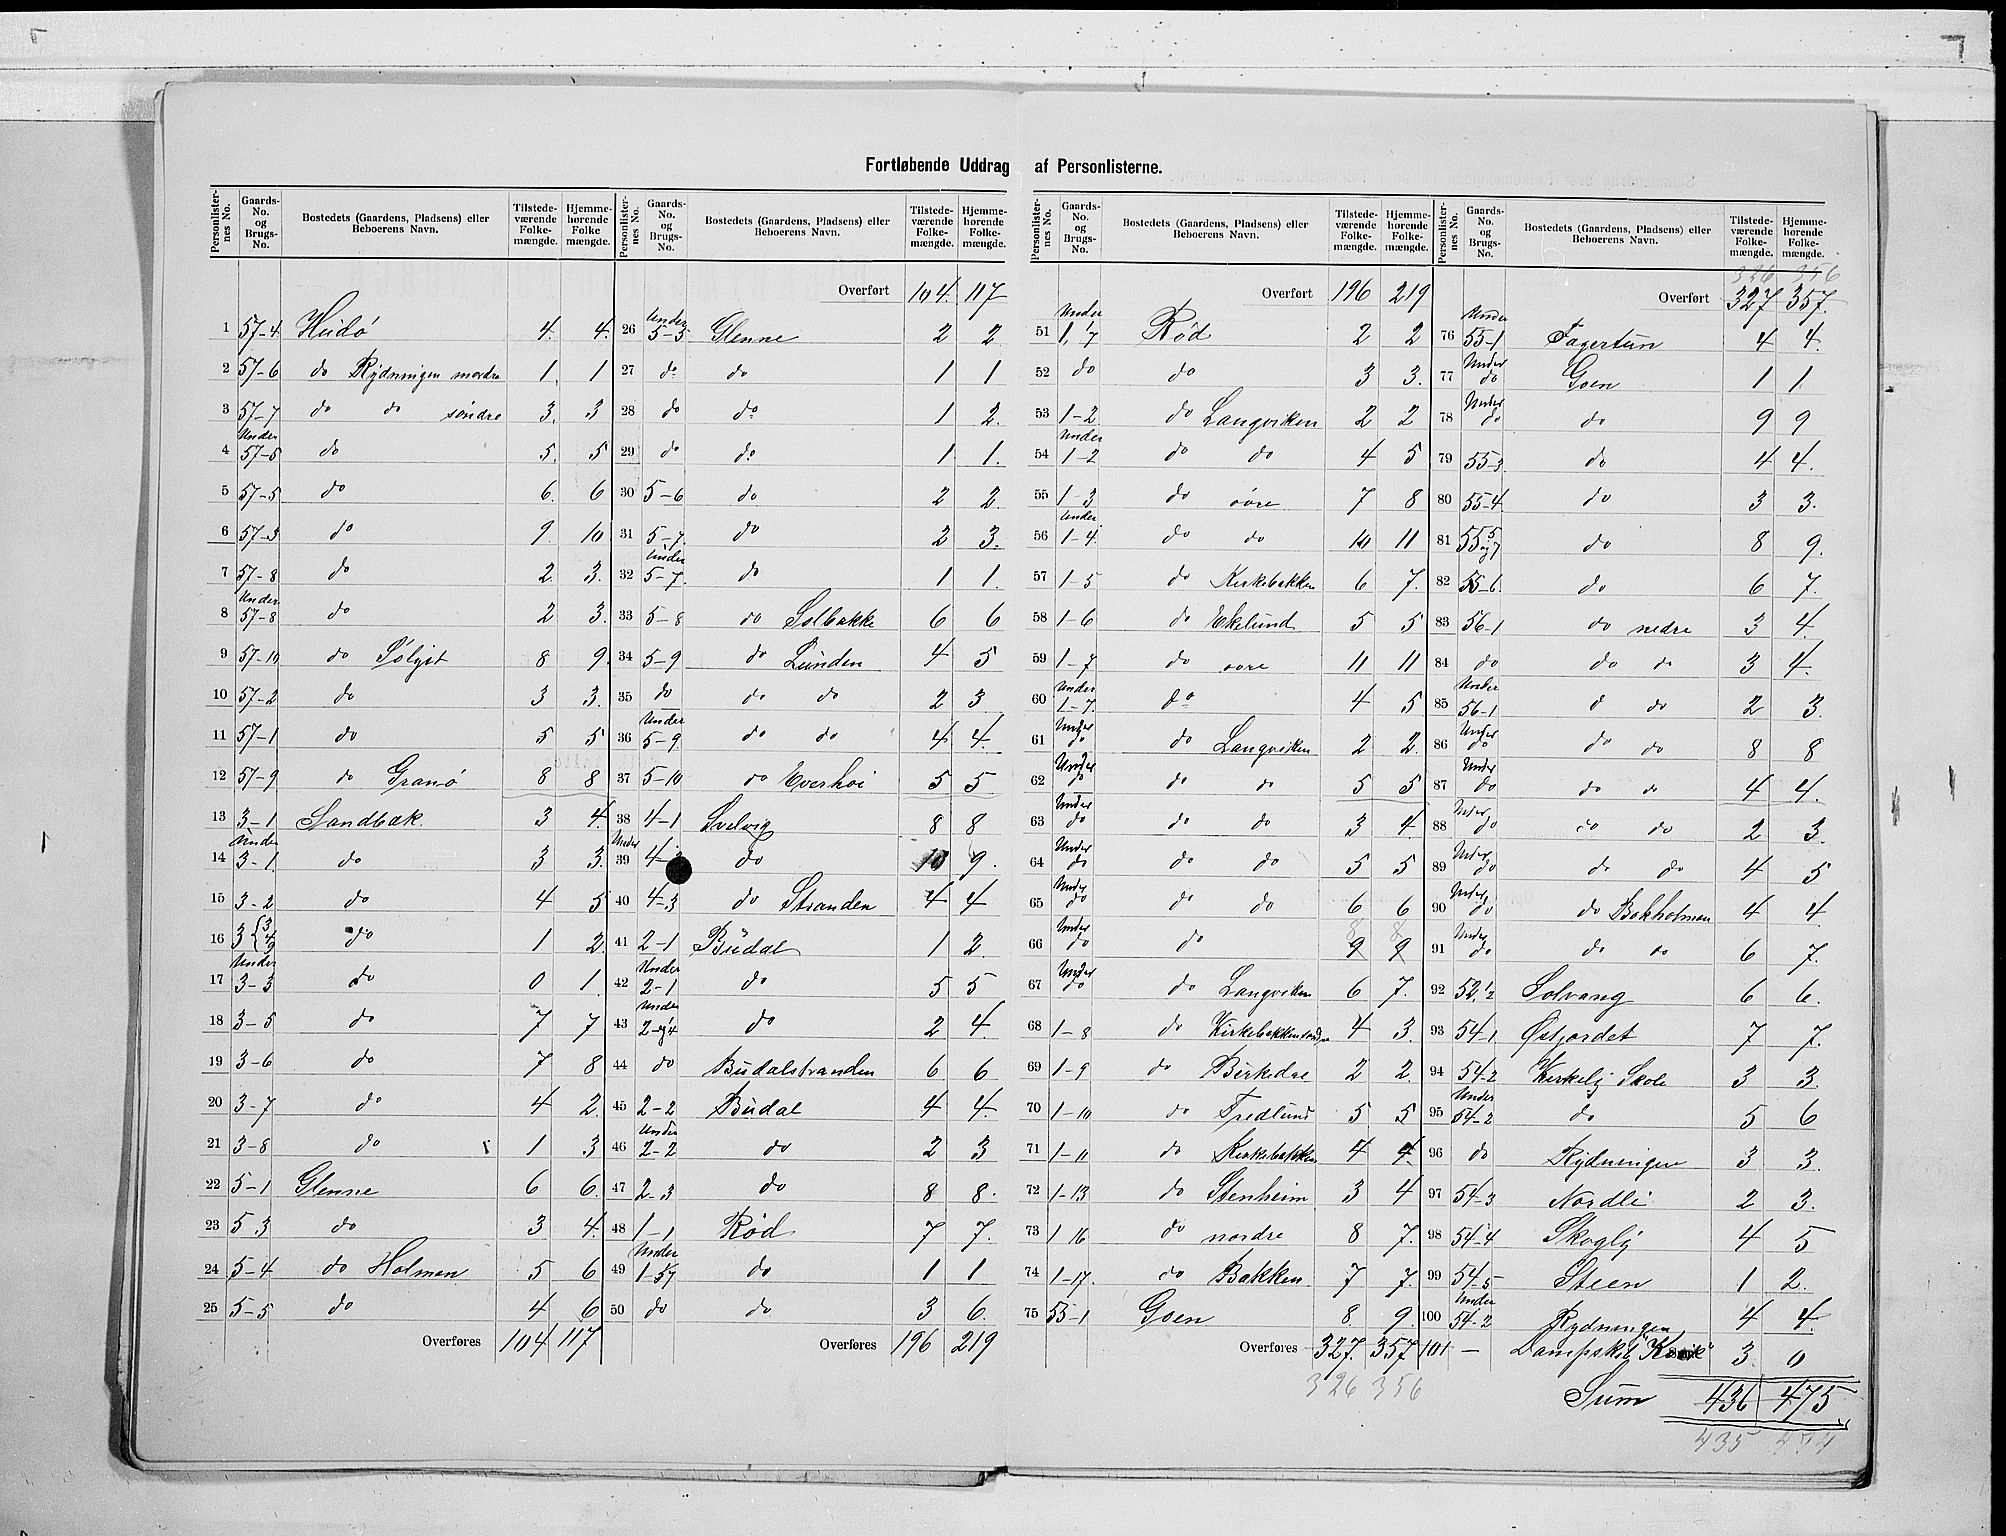 Fortløbende Uddrag af Personlisterne.
Personlisternes No. Gaards-No. og Brugs-No. Bostedets (Gaardens, Pladsens) eller Beboerens Navn. Tilstedeværende Folkemængde. Hjemmehørende Folkemængde.
1 57-4 Hüdø 4. 4.
2 57-6 do Rydningen nordre 1. 1
3 57-7 do do søndre 3. 3
4 Under 57-5 do 5. 5
5 57-5 do 6. 6
6 57-3 do 9. 10
7 57-8 do 2 3.
8 Under 57-8 do 2 3.
9 57-10 do Sølyst 8 9.
10 57-2 do 3 3.
11 57-1 do 5 5
12 57-9 do Granø 8 8
13 3-1 Sandbæk. 3 4.
14 Under 3-1. do 3 3.
15 3-2 do 4 5
16 3 {3 4 9 do 1 2.
17 Under 3-3 do 0 1
18 3-5 do 7 7
19 3-6 do 7 8
20 3-7 do 4 2.
21 3-8 do 1 3
22 5-1 Glenne 6 6.
23 5 3 do 3 4.
24 5-4 do Holmen 5 6
25 5-5 do 4 6
Overføres 104 117
Personlisternes No. Gaards-No. og Brugs-No. Bostedets (Gaardens, Pladsens) eller Beboerens Navn. Tilstedeværende Folkemængde. Hjemmehørende Folkemængde.
Overført 104. 117
26 Under 5-5 Glenne 2 2
27 do do 1 1
28 do do 1 2.
29 do do 1 1.
30 5-6 do 2 2.
31 5-7. do 2 3.
32 Under 5-7. do 1 1.
33 5-8 do Solbakke 6 6
34 5-9 do Lünden 4 5
35 do do do 2 3.
36 Under 5-9 do do 4 4.
37 5-10 do Everhøi 5 5
38 4-1 Svelvig 8 8
39 Under do 10 9.
40 4-3 do Stranden 4 4
41 2-1 Büdal 1 2.
42 Under 2-1 do 5 5
43 Under do 2 4.
44 do Büdalstranden 6 6
45 2-2 Büdal 4 4.
46 Under 2-2 do 2 3
47 2-3 do 8 8.
48 1-1 Rød 7 7.
49 Under do 1 1
50 do do 3 6.
Overføres 196 219
Personlisternes No. Gaards-No. og Brugs-No. Bostedets (Gaardens, Pladsens) eller Beboerens Navn. Tilstedeværende Folkemængde. Hjemmehørende Folkemængde.
Overført 196 219
51 Under Rød 2 2
52 do do 3 3.
53 1-2 do Langviken 2 2
54 Under 1-2 do do 4 5
55 1-3 do øvre 7 8
56 Under 1-4. do do 10 11
57 1-5 do Kirkebakken 6 7.
58 1-6 do Ekelund 5 5
59 1-7 do øvre 11 11
60 Under 1-7. do 4 5
61 Under do do Langviken 2 2.
62 Under do do do 5 5
63 Under do do do 3 4
64 Under do do do 5 5
65 Under do do do 6 6
66 Under do do 9 9
67 Under do do Langviken 6 7.
68 1-8 do 4 3.
69 1-9 do 2 2.
70 1-10 do Fredlund 5 5
71 1-11 do Kirkebakken 4 4.
72 1-13 do Stenheim 3 4
73 1 16 do nordre 8 7.
74 1-17. do Bakken 7 7.
75 55-1 Goen 8 9.
Overføres 327. 357
326 356
Personlisternes No. Gaards-No. og Brugs-No. Bostedets (Gaardens, Pladsens) eller Beboerens Navn. Tilstedeværende Folkemængde. Hjemmehørende Folkemængde.
326 356
Overført 327 357.
76 Under 55-1 Fagertun 4 4.
77 Under do Goen 1 1.
78 Under do do 9 9
79 55-3 do 4 4.
80 55-4. do 3 3.
81 55 5 og 7 do 8 9.
82 55-6. do 6 7.
83 56-1 do nedre 3 4.
84 do do do 3 4.
85 Under 56-1 do 2 3.
86 Under do do do 8 8
87 Under do do do 4 4.
88 Under do do do 2 3.
89 Under do do do 4 5
90 Under do do Bokholmen 4 4
91 Under do do do 6 7.
92 Solvang 6 6.
93 54-1 Østjordet 7 7.
94 54-2 Kirkelig Skole 3 3.
95 Under 54-2 do 5 6
96 do Rydningen 3 3.
97 54-3 Nordli 2 3.
98 54-4 Skogly 4 5
99 54-5 Steen 1 2.
100 Under 54-2 Rydningen 4 4.
101 — Dampskib 3 0
Sum 436 475
435 474